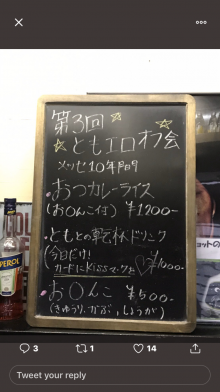 第3回
ともエロオフ会
メッセ10年門9
・おつカレーライス
(お○んこ付) ¥1200-
・ともとの乾杯ドリンク
(今日だけ!
カードにKissマークを♡) ¥1000-
・お○んこ ¥500-
(きゅうり、かぶ、しょうが)
PEROL
3
1
14
Tweet your reply